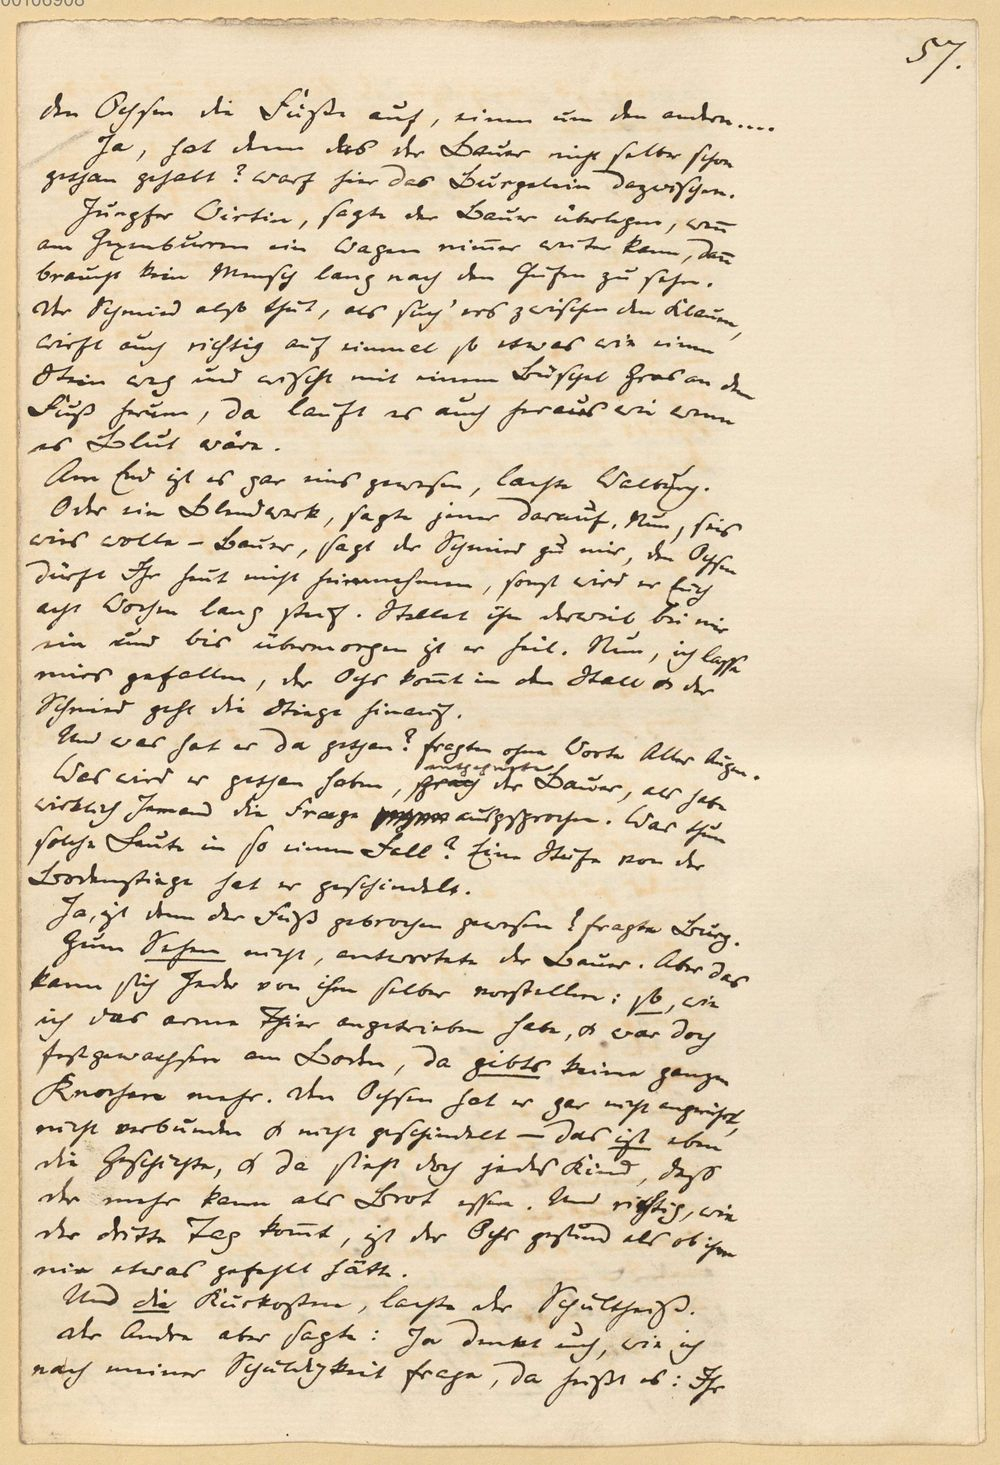 57.
den Ochsen die Füße auf, einen um den andern....
Ja, hat denn das der Bauer nicht selber schon
gethan gehabt? warf hier das Burgelein dazwischen.
Jungfer Wirtin, sagte der Bauer überlegen, weñ
am Hexenburren ein Wagen nim̄er weiter kann, dañ
braucht kein Mensch lang nach den Hufen zu sehn.
Der Schmied also thut, als such' ers zwischen den Klauen,
wirft auch richtig auf einmal so etwas wie einen
Stein weg und wischt mit einem Büschel Gras an dem
Fuß herum, da lauft es auch heraus wie wenn
es Blut wäre.
Am End ist es gar eins gewesen, lachte Walburg.
Oder ein Blendwerk, sagte jener darauf. Nun, seis
wies wolle – Bauer, sagt der Schmied zu mir, den Ochsen
dürft Ihr heut nicht heimnehmen, sonst wird er Euch
acht Wochen lang steif. Stellet ihn derweil bei mir
ein und bis übermorgen ist er heil. Nun, ich lasse
mirs gefallen, der Ochs kom̄t in den Stall & der
Schmied geht die Stiege hinauf.
Und was hat er da gethan? fragten ohne Worte Aller Augen.
Was wird er gethan haben, sprach der Bauer, als habe
wirklich Jemand die Frage ausgesprochen. Was thun
solche Leute in so einem Fall? Eine Stufe von der
Bodenstiege hat er geschindelt.
Ja, ist denn der Fuß gebrochen gewesen? fragte Burg.
Zum Sehen nicht, antwortete der Bauer. Aber das
kann sich Jeder von ihm selber vorstellen: so, wie
ich das arme Thier angetrieben habe, & war doch
festgewachsen am Boden, da gibts keine ganzen
Knochen mehr. Den Ochsen hat er gar nicht angerührt,
nicht verbunden & nicht geschindelt – das ist eben
die Geschichte, & da sieht doch jedes Kind, daß
der mehr kann als Brot essen. Und richtig, wie
der dritte Tag kom̄t, ist der Ochs gesund als ob ihm
nie etwas gefehlt hätte.
Und die Kurkosten, lachte der Schultheiß.
Der Andre aber sagte: Ja denkt euch, wie ich
nach meiner Schuldigkeit frage, da heißt es: Ihr